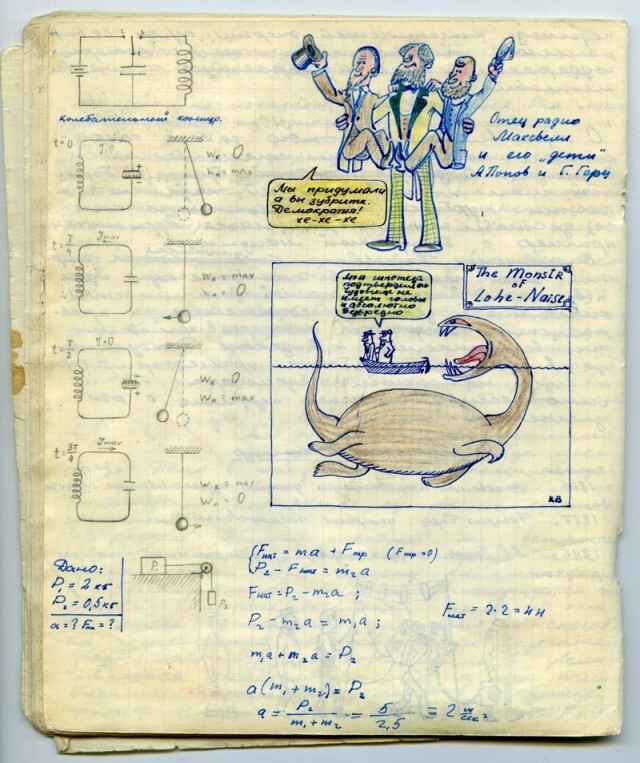 Колебательный контур.
t=0
J=0
Wк = 0
Wп = max
t = T/4
Jmax
Wк = max
Wп = 0
t = T/2
J=0
Wк = 0
Wп = max
t = 3T/4
Jmax
Wк = max
Wп = 0
Отец радио
Максвелл
и его „дети"
А Попов и Г. Герц
Мы придумали
а вы зубрите.
Демократия!
хе-хе-хе
The Monstr
of
Lohe-Naise
Моя гипотеза
подтвердилась
чудовище не
имеет головы
и абсолютно
безвредно
КВ
Дано:
P₁ = 2 кг
P₂ = 0,5 кг
a = ? Fнат = ?
P₁
P₂
{Fнат = ma + Fтр (Fтр = 0)
{P₂ - Fнат = m₂a
Fнат = P₂ - m₂a ;
P₂ - m₂a = m₁a ;
m₁a + m₂a = P₂
a(m₁ + m₂) = P₂
a = P₂/(m₁ + m₂) = 5/2,5 = 2 м/сек²
Fнат = 2·2 = 4н